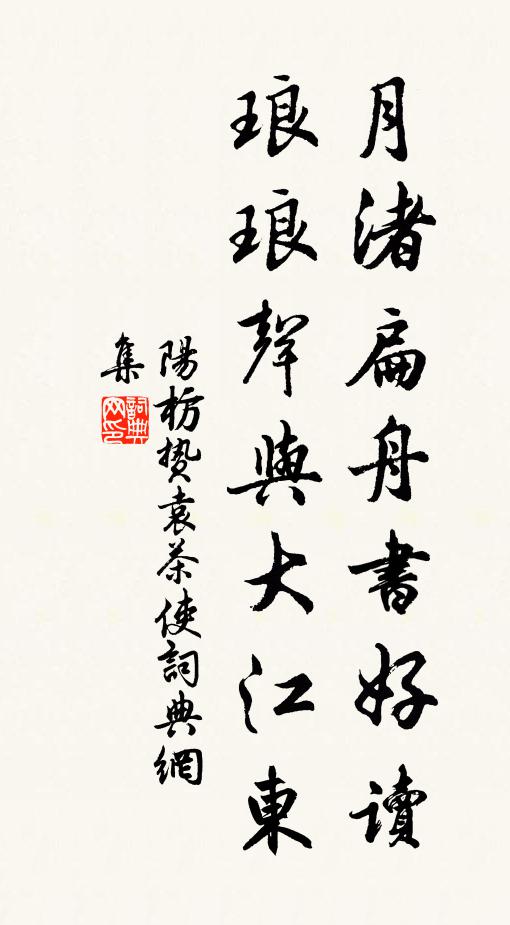 月渚扁舟書好讀
琅琅聲與大江東
陽枋贄袁茶使詞典網
集
詞典
网印